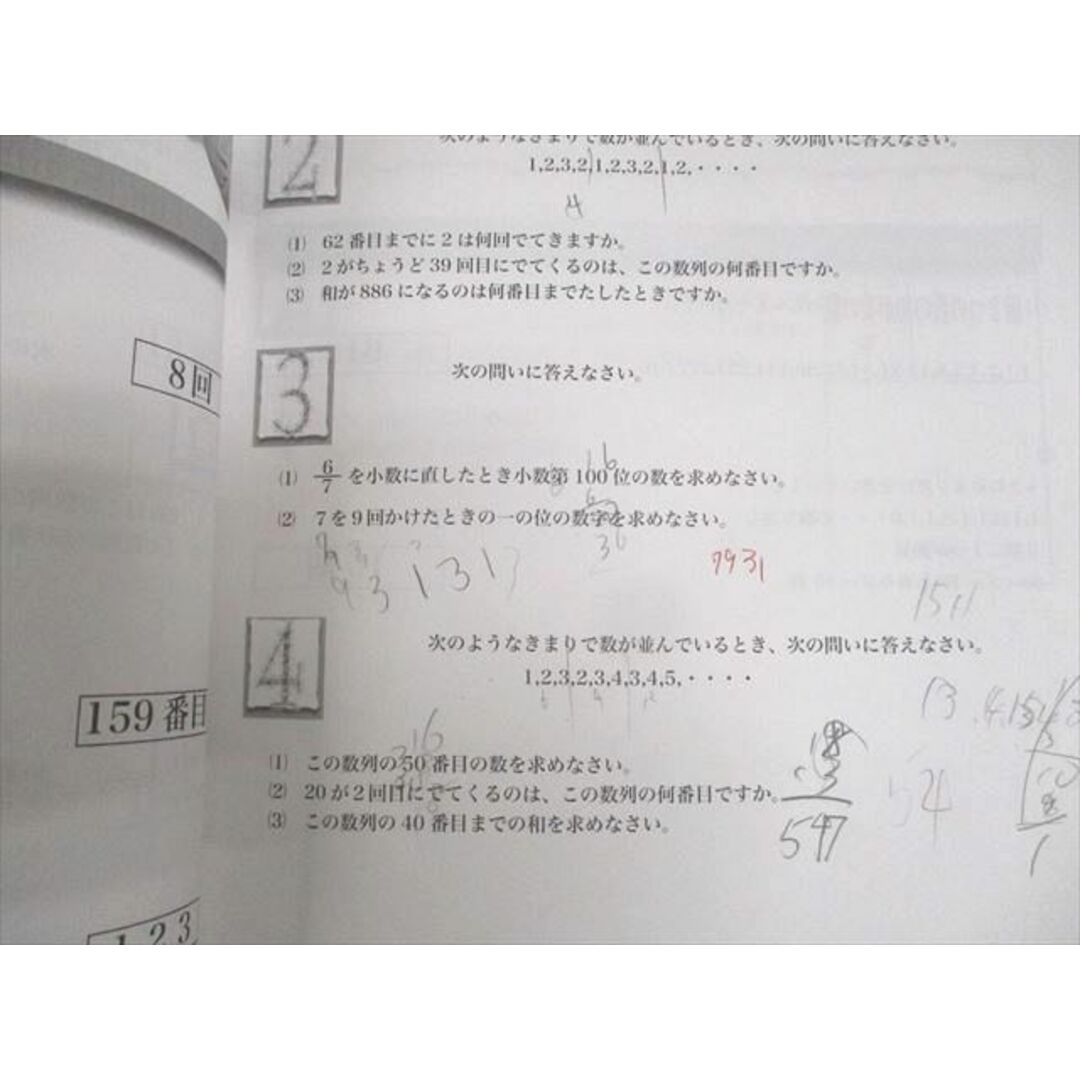 8回
159番目
1 2 3
2
次のようなきまりで数が並んでいるとき、次の問いに答えなさい。
1,2,3,2,1,2,3,2,1,2,・・・・
4
(1) 62番目までに2は何回でてきますか。
(2) 2がちょうど39回目にでてくるのは、この数列の何番目ですか。
(3) 和が886になるのは何番目までたしたときですか。
3
次の問いに答えなさい。
16
(1) 6/7 を小数に直したとき小数第100位の数を求めなさい。
(2) 7を9回かけたときの一の位の数字を求めなさい。
36
7931
1 3 1
4
次のようなきまりで数が並んでいるとき、次の問いに答えなさい。
1,2,3,2,3,4,3,4,5,・・・・
13
16
(1) この数列の50番目の数を求めなさい。
(2) 20が2回目にでてくるのは、この数列の何番目ですか。
(3) この数列の40番目までの和を求めなさい。
547
54
1